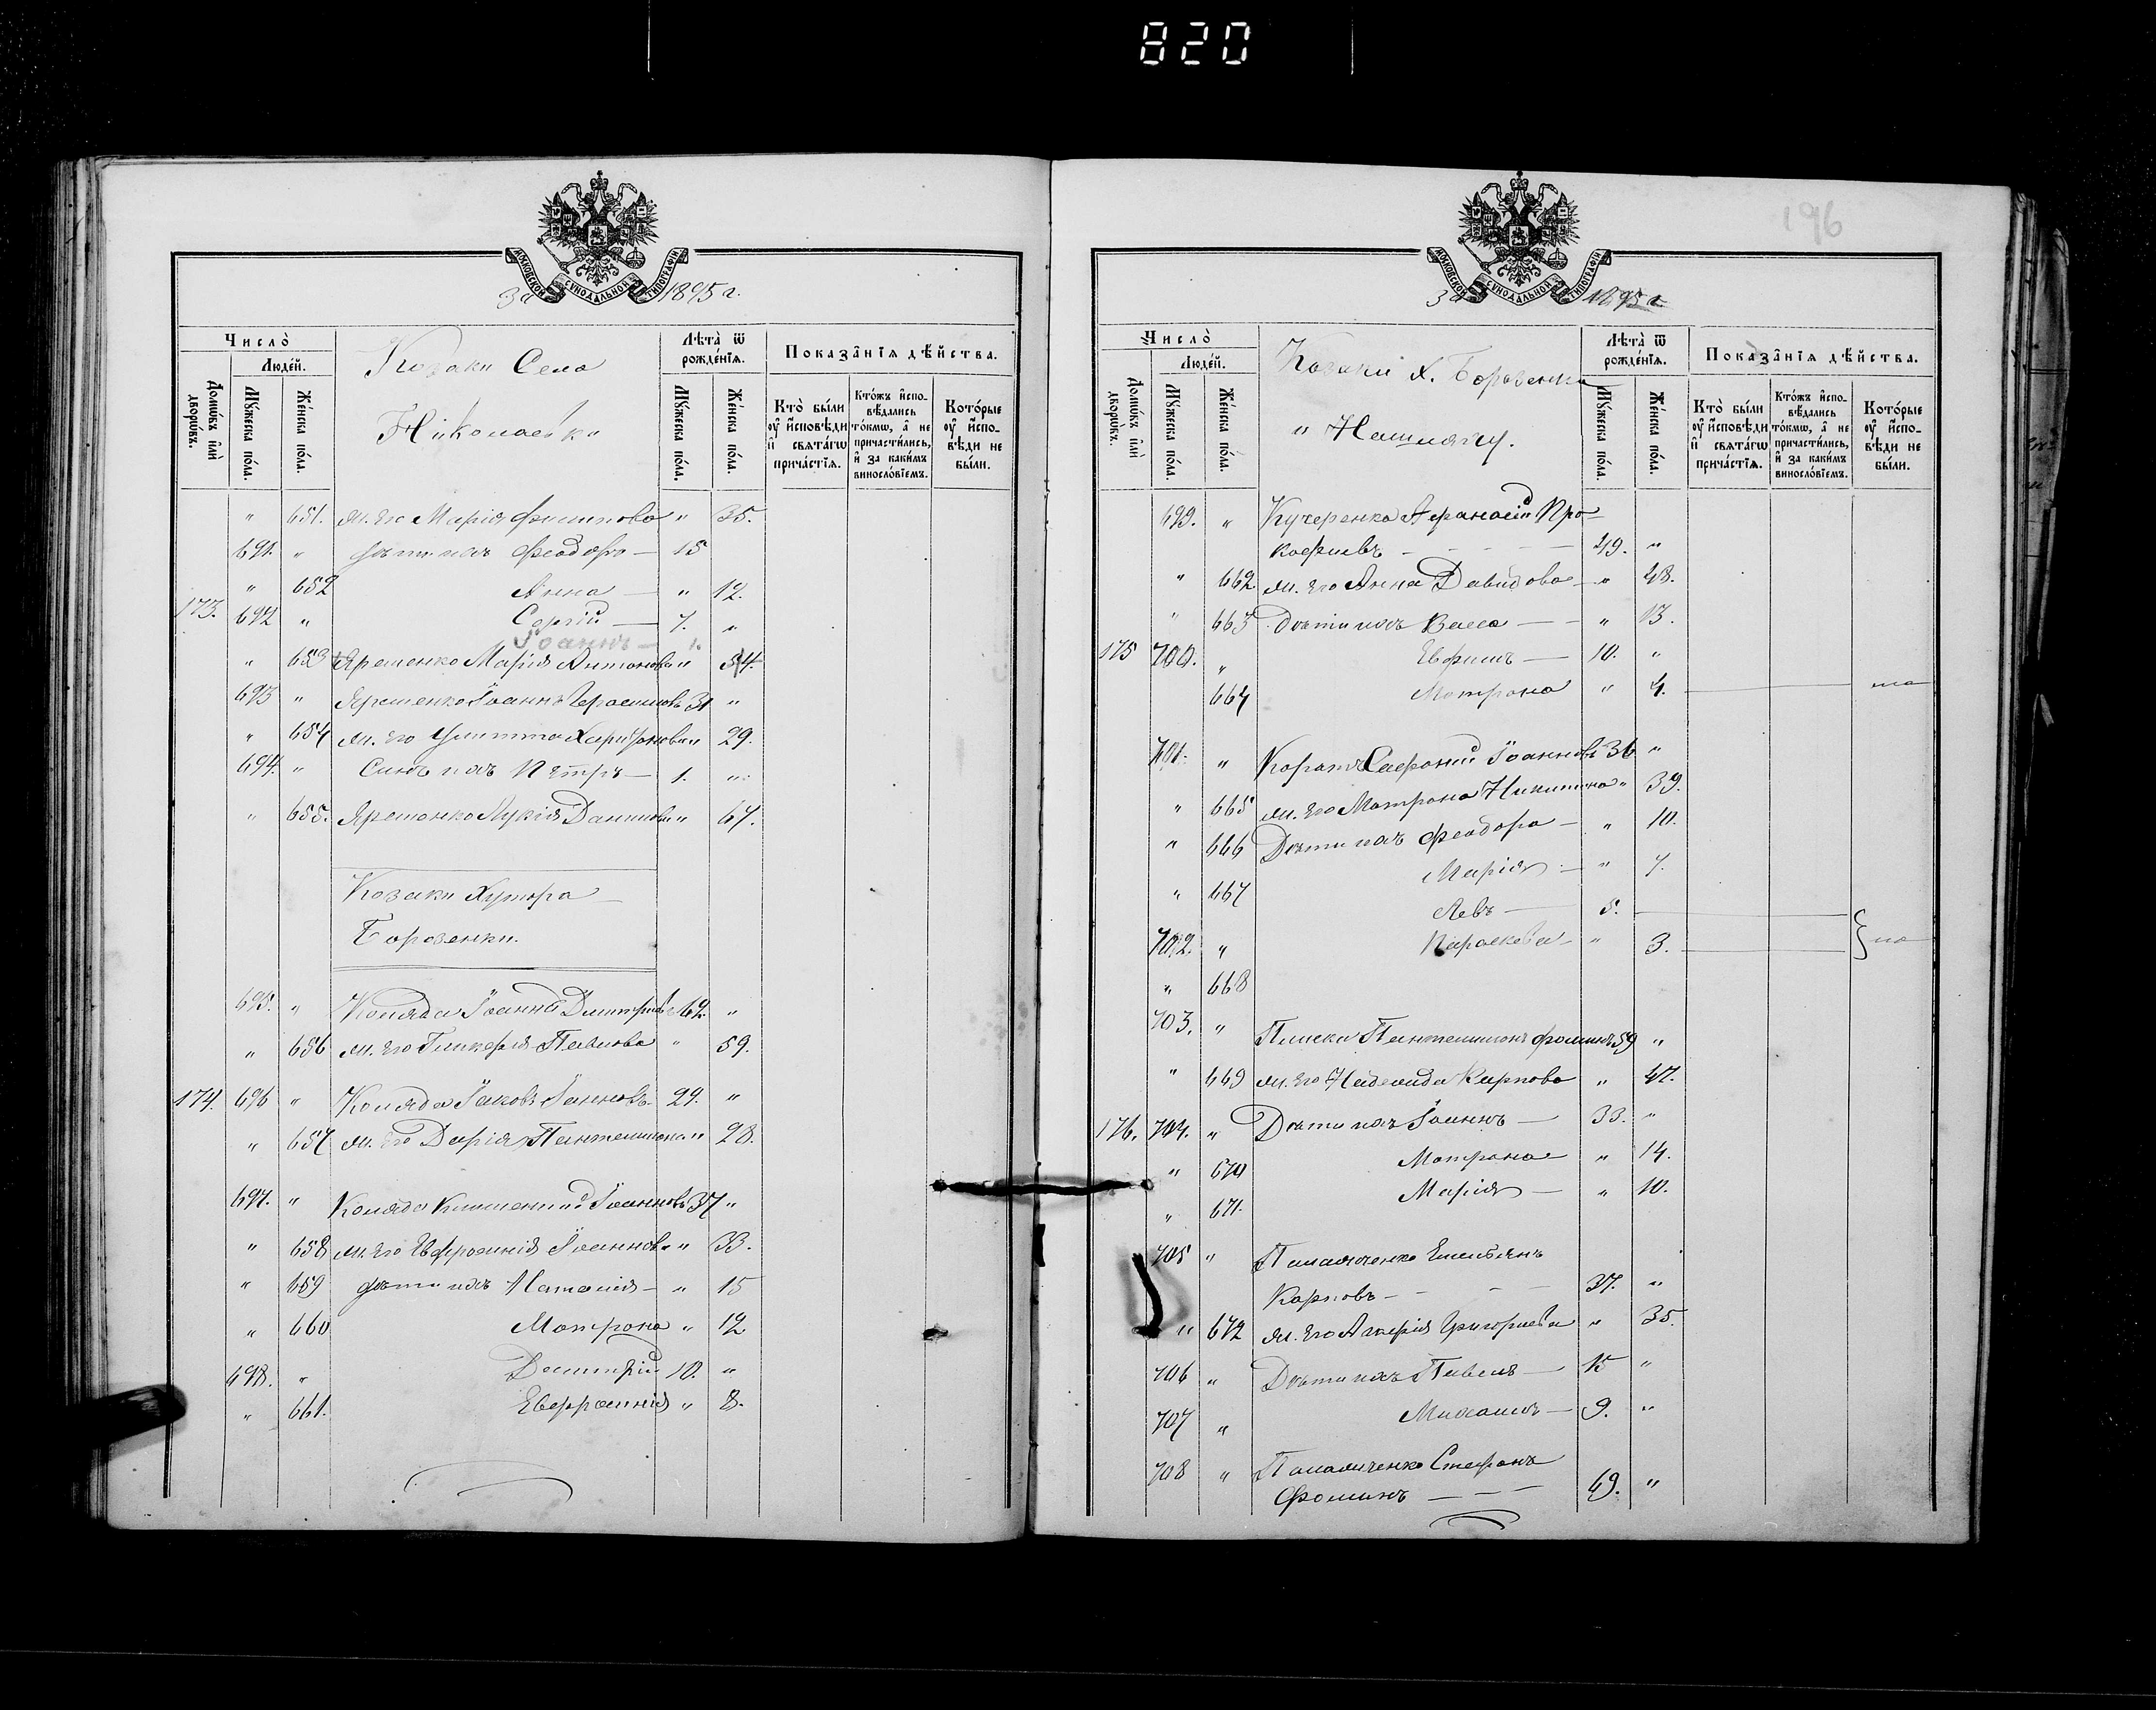 820
МОСКОВСКОЙ СѴНОДАЛЬНОЙ ТИПОГРАФІИ
За 1895 г.
Число̀
Люде́й.
Домѡ́въ и҆лѝ дворѡ́въ.
Мꙋ́жеска по́ла.
Же́нска по́ла.
Козаки Села
Николаевки
Лѣ́та ѿ рожде́нїѧ.
Мꙋ́жеска по́ла.
Же́нска по́ла.
Показа̑нїѧ дѣ́йства.
Кто̀ бы́ли ᲂу҆ и҆́сповѣди и҆ свѧта́гѡ прича́стїѧ.
Кто́жъ и҆спо-вѣ́дались то́кмѡ, а҆ не причасти́лись, и҆ за каки́мъ винослові́емъ.
Кото́рые ᲂу҆ и҆́спо-вѣди не бы́ли.
" 651. ж. его Марія Филипова " 35.
691. " дѣти ихъ Феодоръ — 15
" 652 Анна — " 12.
173. 692 " Сергій — 7. "
Іоаннъ — 1.
" 653 Яременко Марія Антонова " 54.
693 " Яременко Іоаннъ Герасимовъ 31 "
" 654 ж. его Улитта Харитонова " 29.
694. " Сынъ ихъ Петръ — 1. "
" 655. Яременко Лукія Данилова " 67.
Козаки Хутора
Борозенки.
695. " Коляда Іоаннъ Димитріевъ 62. "
" 656 ж. его Гликерія Павлова " 59.
174. 696 " Коляда Іаковъ Іоанновъ 29. "
" 657 ж. его Дарія Пантелимона " 28.
697. " Коляда Климентій Іоанновъ 37 "
" 658 ж. его Евфросинія Іоаннова " 33.
" 659 дѣти ихъ Наталія — " 15
" 660 Матрона " 12
698. " Димитрій 10. "
" 661. Евфросинія " 8.
196
МОСКОВСКОЙ СѴНОДАЛЬНОЙ ТИПОГРАФІИ
За 1895 г.
Число̀
Люде́й.
Домѡ́въ и҆лѝ дворѡ́въ.
Мꙋ́жеска по́ла.
Же́нска по́ла.
Козаки х. Борозенки
Лѣ́та ѿ рожде́нїѧ.
Мꙋ́жеска по́ла.
Же́нска по́ла.
Показа̑нїѧ дѣ́йства.
Кто̀ бы́ли ᲂу҆ и҆́сповѣди и҆ свѧта́гѡ прича́стїѧ.
Кто́жъ и҆спо-вѣ́дались то́кмѡ, а҆ не причасти́лись, и҆ за каки́мъ винослові́емъ.
Кото́рые ᲂу҆ и҆́спо-вѣди не бы́ли.
699. " Кучеренко Афанасій Про-
кофіевъ — — — 49. "
" 662. ж. его Анна Давидова — " 48.
" 663 Дѣти ихъ Васса — — " 13.
175 700. " Евфимъ — 10. "
664 Матрона " 4.
701. " Софоній Іоанновъ 36 "
" 665 ж. его Матрона Никитина " 39.
" 666 Дѣти ихъ Феодора — " 10.
Марія — " 7.
" 667
Левъ — 5.
702. " Параскева — " 3.
" 668
703. " Плиска Пантелимонъ Фоминъ 59 "
" 669 ж. его Надежда Карпова " 47.
176. 704. " Дѣти ихъ Іоаннъ — 33. "
" 670 Матрона " 14.
" 671. Марія — " 10.
705 " Емельянъ
Карповъ — — — 37. "
" 672 ж. его Григорьева " 35.
706 " Дѣти ихъ Павелъ — 15 "
707 " Михаилъ — 9. "
708 " Стефанъ
Фоминъ — — — 69. "